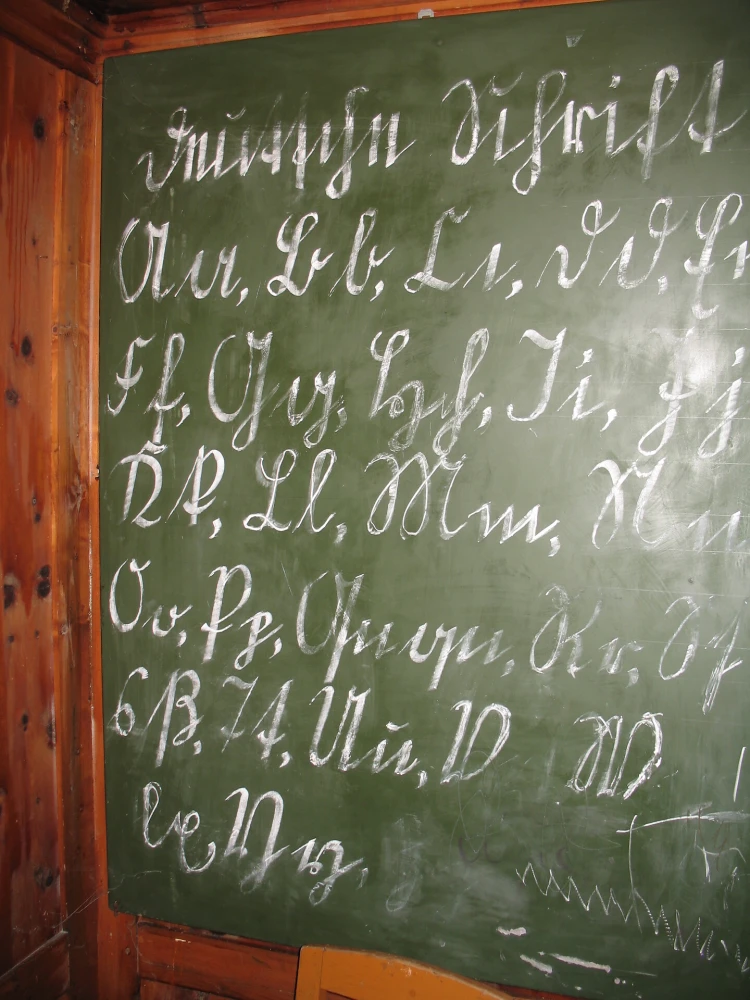 Deutsche Schrift
Aa, Bb, Cc, Dd, Ee
Ff, Gg, Hh, Ii, Jj
Kk, Ll, Mm, Nn
Oo, Pp, Ququ, Rr, Sſ
s ß, Tt, Uu, V W
x Yy,